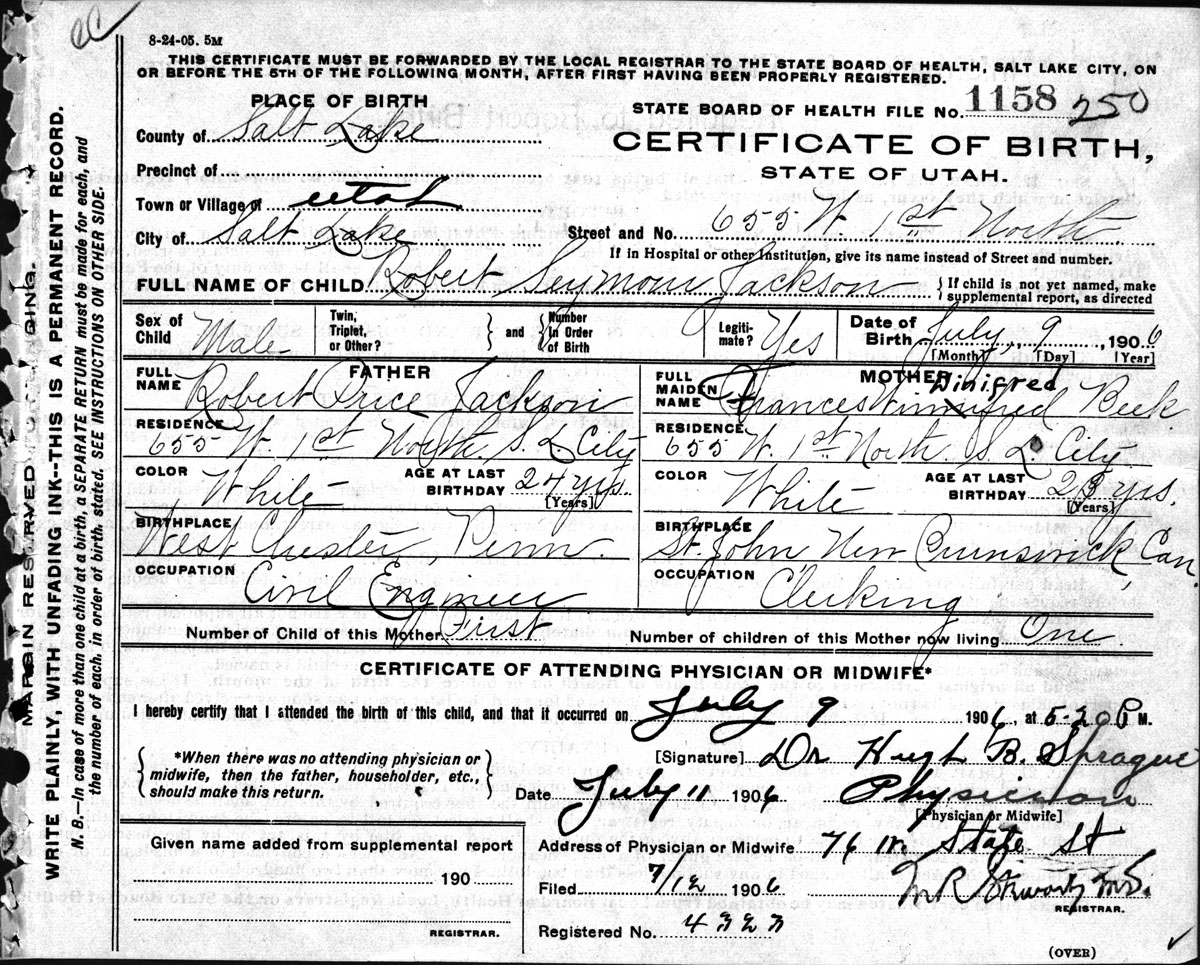 eC
8-24-05. 5M
THIS CERTIFICATE MUST BE FORWARDED BY THE LOCAL REGISTRAR TO THE STATE BOARD OF HEALTH, SALT LAKE CITY, ON
OR BEFORE THE 5TH OF THE FOLLOWING MONTH, AFTER FIRST HAVING BEEN PROPERLY REGISTERED.
MARGIN RESERVED FOR BINDING.
WRITE PLAINLY, WITH UNFADING INK--THIS IS A PERMANENT RECORD.
N. B.—In case of more than one child at a birth, a SEPARATE RETURN must be made for each, and
the number of each, in order of birth, stated. SEE INSTRUCTIONS ON OTHER SIDE.
PLACE OF BIRTH
STATE BOARD OF HEALTH FILE No. 1158 250
County of Salt Lake
CERTIFICATE OF BIRTH,
STATE OF UTAH.
Precinct of
Town or Village of utah
Street and No. 655 W. 1st North
City of Salt Lake
If in Hospital or other Institution, give its name instead of Street and number.
FULL NAME OF CHILD Robert Seymour Jackson { If child is not yet named, make
supplemental report, as directed
Sex of Child Male
Twin, Triplet, or Other? } and { Number In Order of Birth
Legitimate? Yes
Date of Birth July, 9, 1906
[Month] [Day] [Year]
FATHER
FULL NAME Robert Price Jackson
RESIDENCE 655 W. 1st North. S. L. City
COLOR White AGE AT LAST BIRTHDAY 24 yrs. [Years]
BIRTHPLACE West Chester, Penn.
OCCUPATION Civil Engineer
MOTHER
Winifred
FULL MAIDEN NAME Frances Winnifred Beck
RESIDENCE 655 W. 1st North. S. L. City
COLOR White AGE AT LAST BIRTHDAY 23 yrs. [Years]
BIRTHPLACE St. John, New Brunswick, Can.
OCCUPATION Clerking
Number of Child of this Mother First Number of children of this Mother now living One
CERTIFICATE OF ATTENDING PHYSICIAN OR MIDWIFE*
I hereby certify that I attended the birth of this child, and that it occurred on July 9 1906, at 5-20 P M.
{ *When there was no attending physician or
midwife, then the father, householder, etc.,
should make this return. }
[Signature] Dr Hugh B. Sprague
Date July 11 1906 Physician
[Physician or Midwife]
Given name added from supplemental report
190
REGISTRAR.
Address of Physician or Midwife 76 State St
Filed 7/12 1906 M.D.
REGISTRAR.
Registered No. 4323
(OVER)